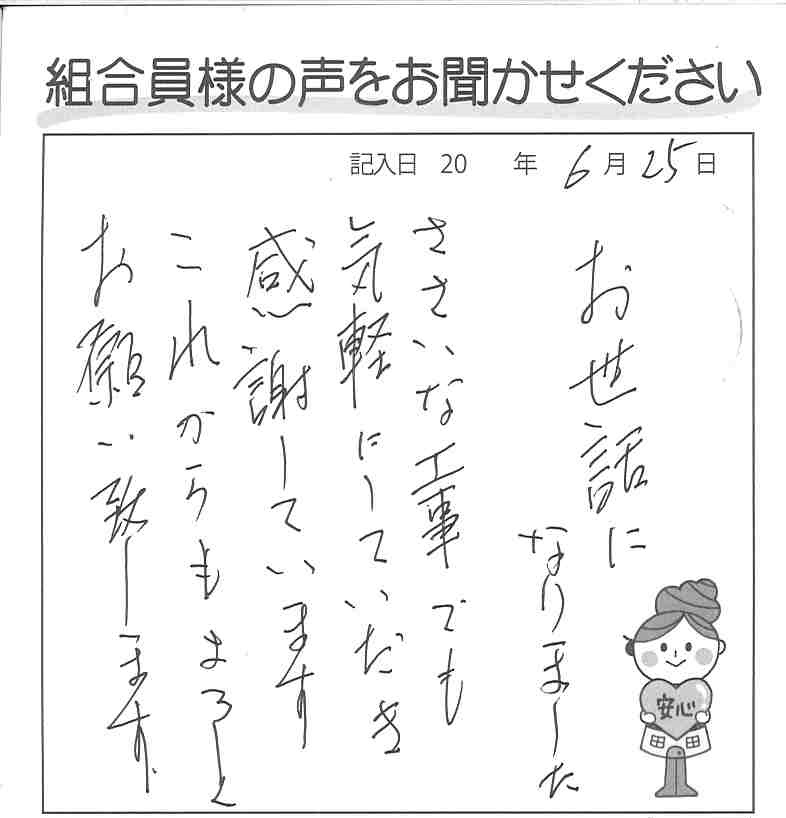 組合員様の声をお聞かせください
記入日 20 年 6月25日
お世話に
なりました
ささいな工事でも
気軽にしていだき
感謝しています
これからもよろしく
お願い致します。
安心